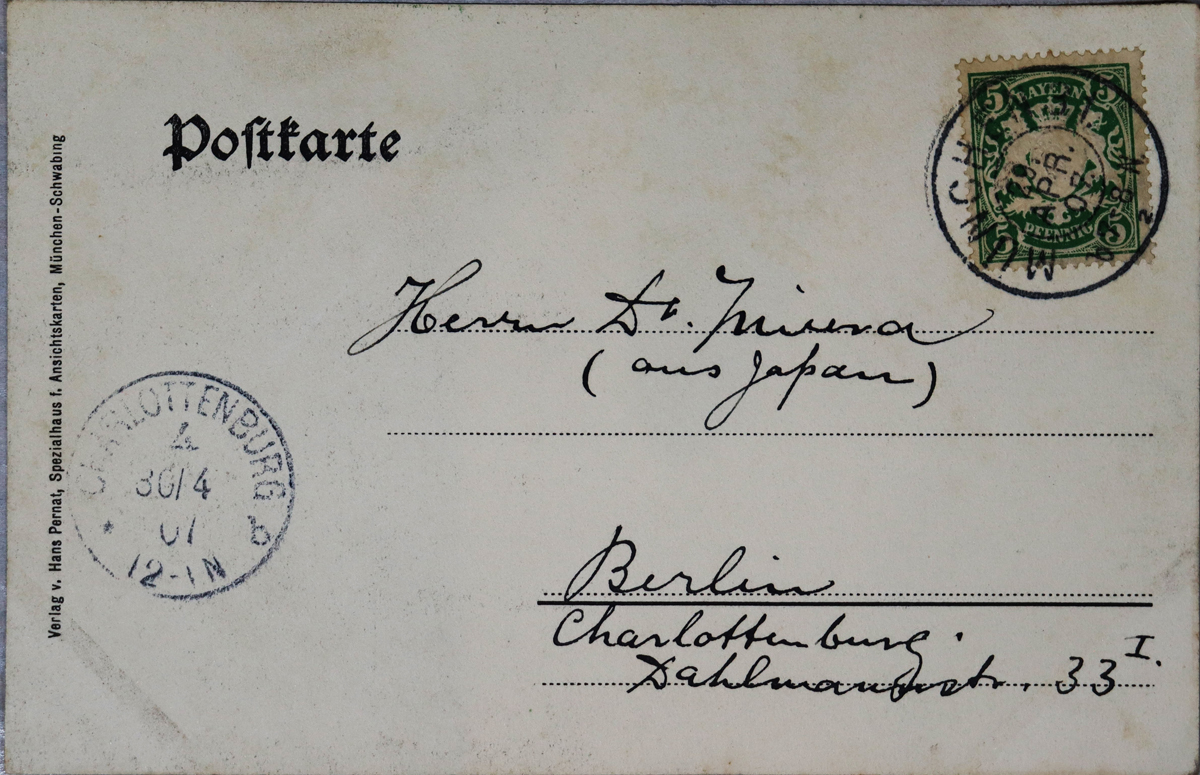 Postkarte
Verlag v. Hans Pernat, Spezialhaus f. Ansichtskarten, München-Schwabing
5 BAYERN 5
PFENNIG 5
MÜNCHEN
APR.
Herrn Dr. Miura
(aus Japan)
CHARLOTTENBURG
30/4
07
12-1N
b
Berlin
Charlottenburg.
Dahlmannstr. 33 I.